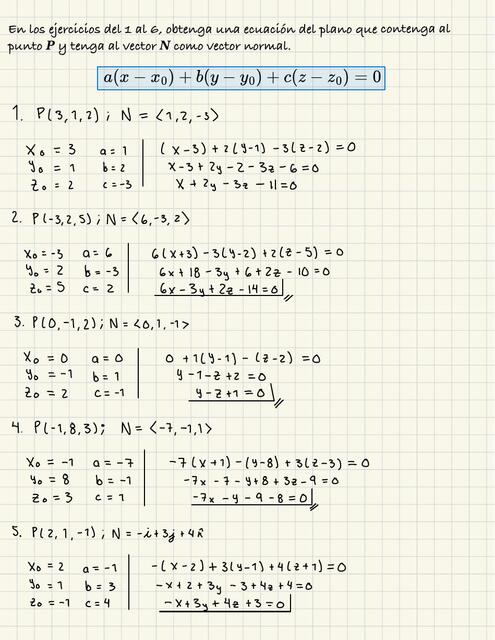 En los ejercicios del 1 al 6, obtenga una ecuación del plano que contenga al
punto P y tenga al vector N como vector normal.
a(x − x₀) + b(y − y₀) + c(z − z₀) = 0
1. P(3,1,2) ; N = <1,2,-3>
x₀ = 3 a = 1 (x-3) + 2(y-1) -3(z-2) = 0
y₀ = 1 b = 2 x-3+2y-2-3z-6=0
z₀ = 2 c = -3 x + 2y -3z -11=0
2. P(-3,2,5) ; N = <6,-3,2>
x₀ = -3 a = 6 6(x+3) -3(y-2) +2(z-5) = 0
y₀ = 2 b = -3 6x+18-3y+6+2z-10=0
z₀ = 5 c = 2 6x-3y+2z-14=0
3. P(0,-1,2) ; N = <0,1,-1>
x₀ = 0 a = 0 0 +1(y-1) -(z-2) =0
y₀ = -1 b = 1 y-1-z+2 =0
z₀ = 2 c = -1 y-z+1 =0
4. P(-1,8,3); N = <-7,-1,1>
x₀ = -1 a = -7 -7(x+1) -(y-8) +3(z-3) = 0
y₀ = 8 b = -1 -7x -7-y+8+3z-9=0
z₀ = 3 c = 1 -7x -y -9 -8=0
5. P(2,1,-1) ; N = -i+3j+4k
x₀ = 2 a = -1 -(x-2) +3(y-1) +4(z+1) =0
y₀ = 1 b = 3 -x+2+3y-3+4z+4=0
z₀ = -1 c = 4 -x+3y+4z+3=0